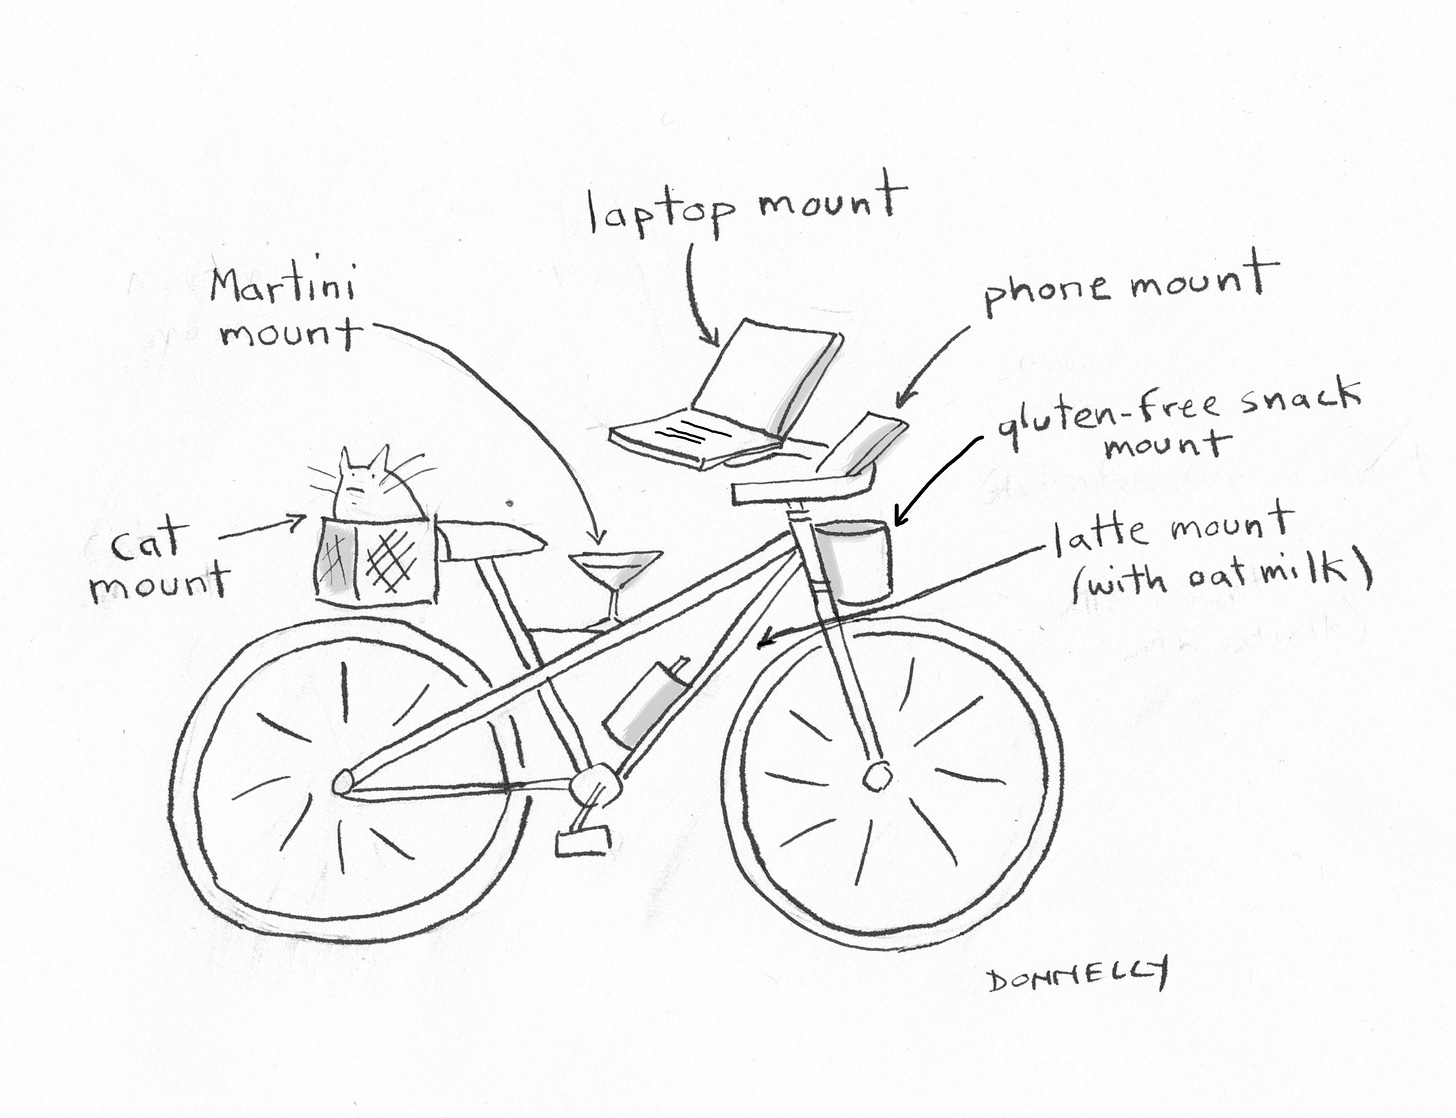 laptop mount
Martini
mount
phone mount
gluten-free snack
mount
cat
mount
latte mount
(with oat milk)
DONNELLY